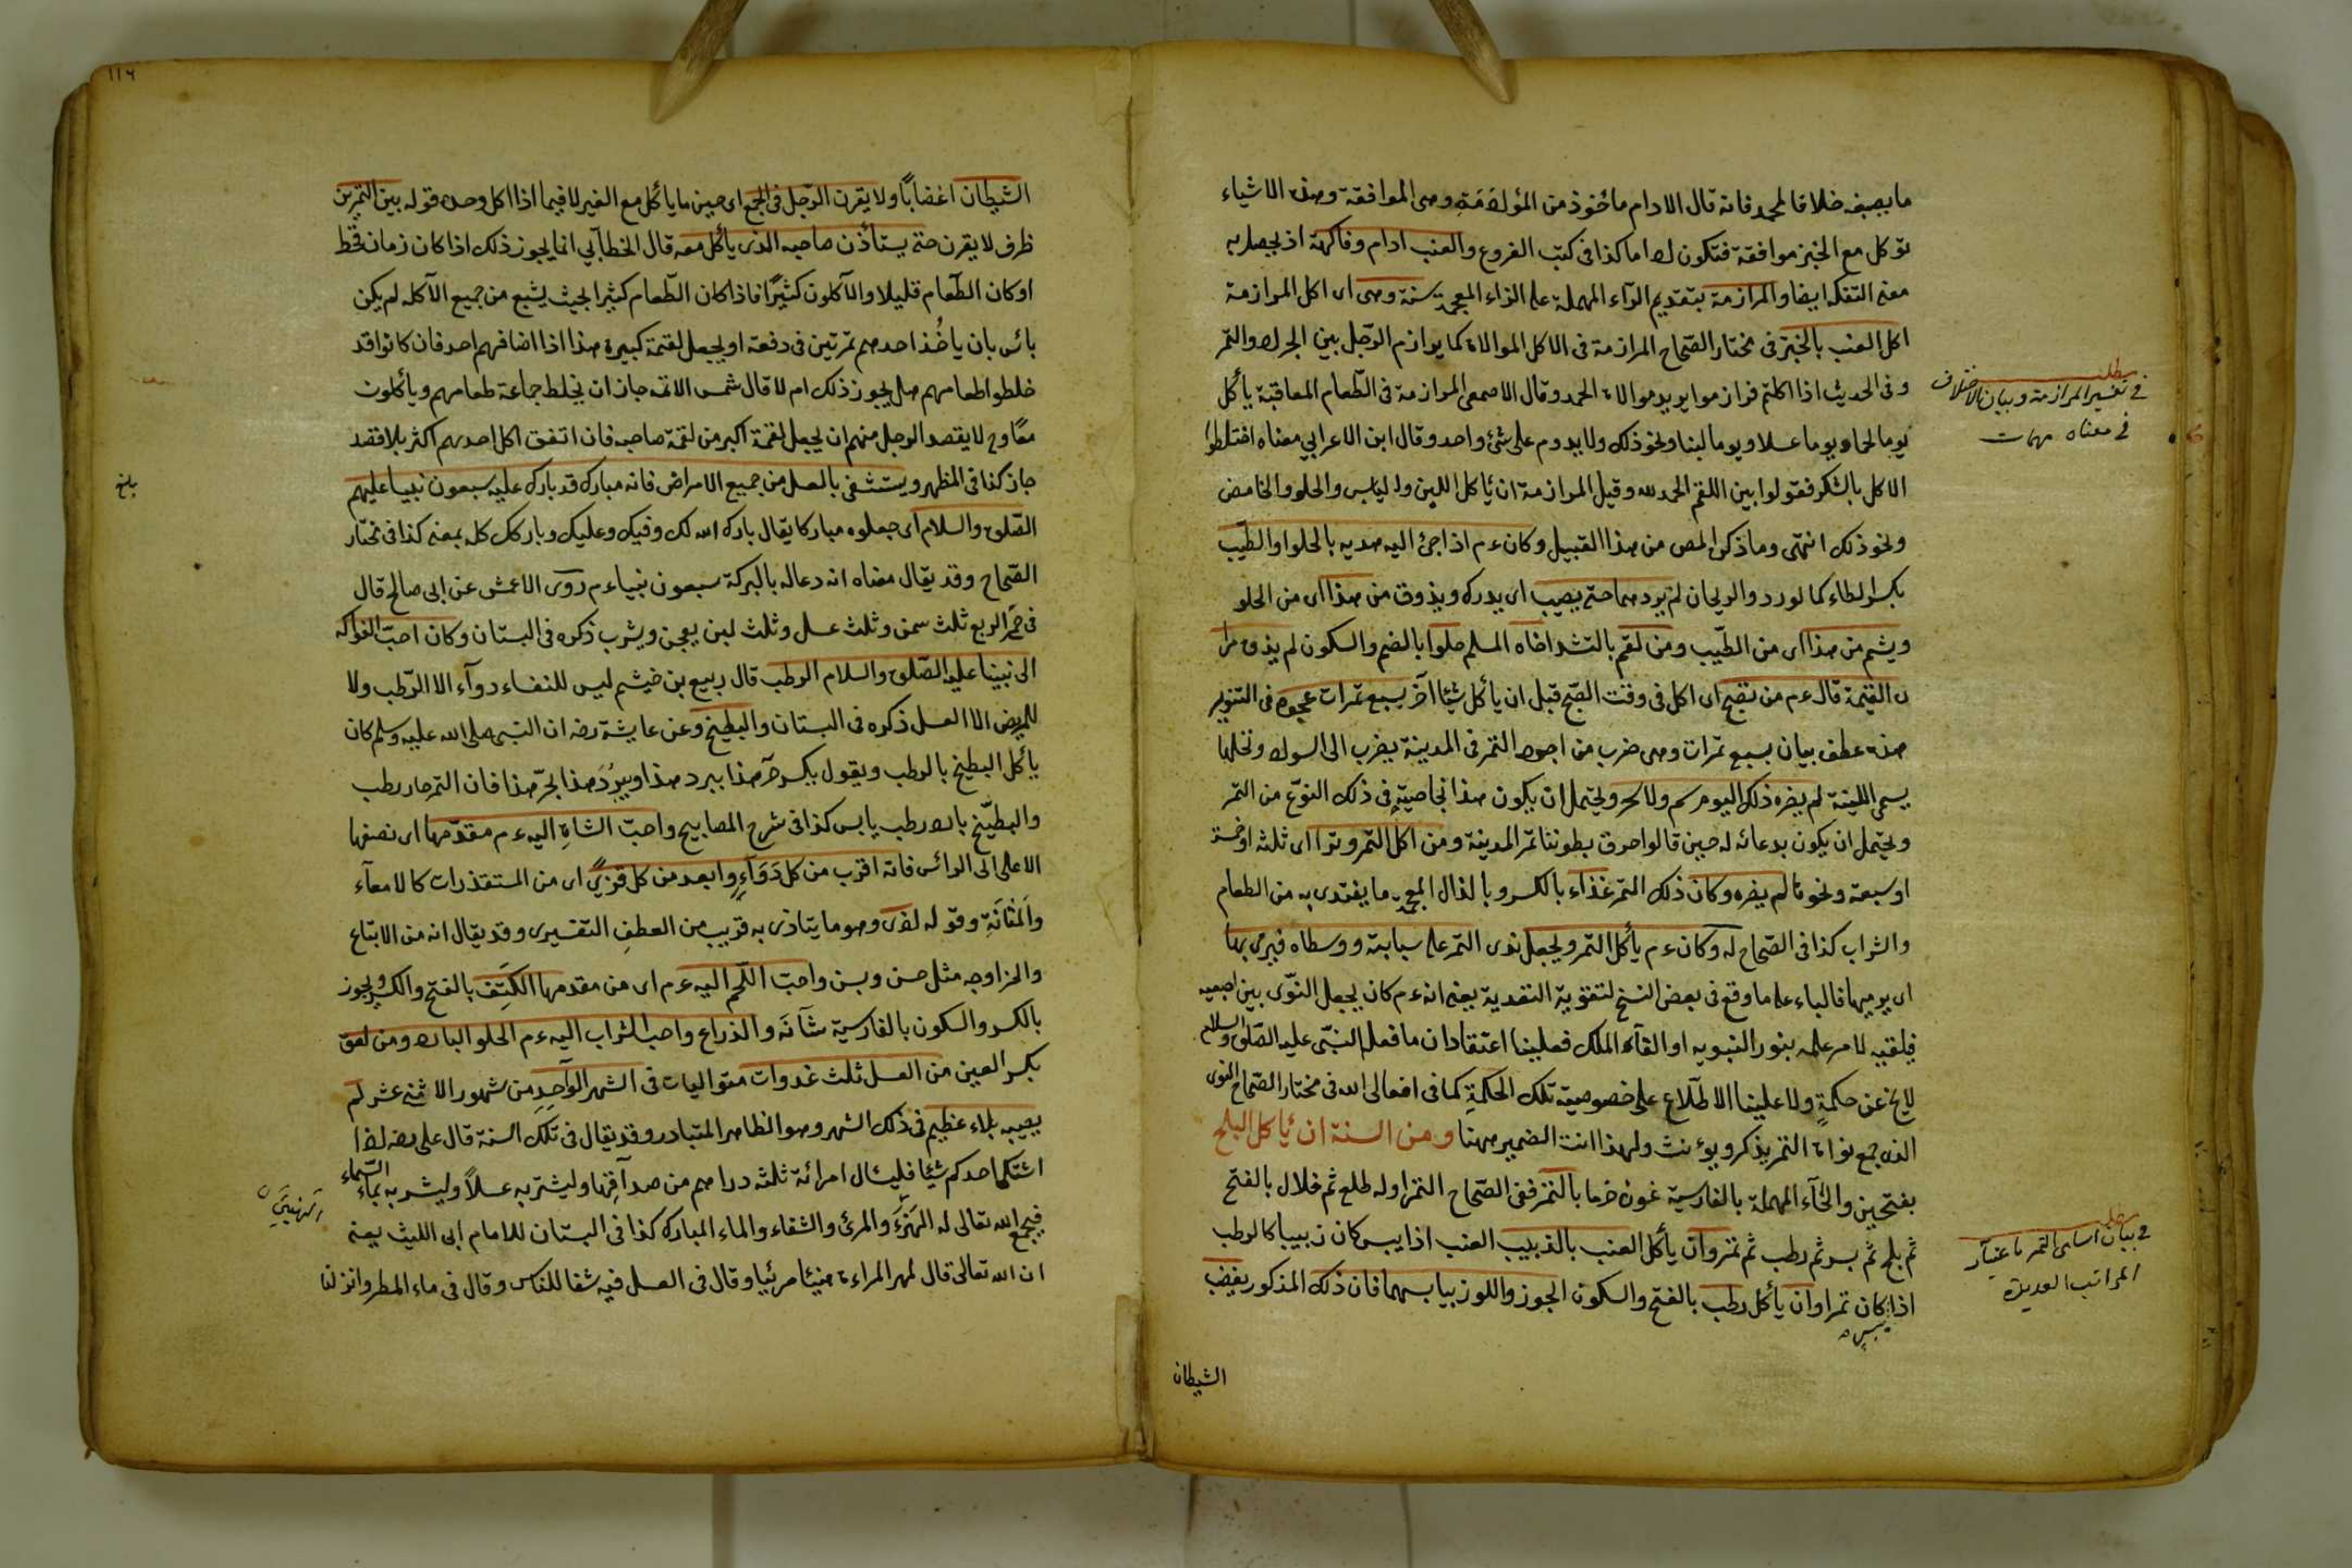 ما يصبغه خلافا لمحمد فانه قال الادام مأخوذ من المؤلادمة وهى الموافقة وهذه الاشياء
تؤكل مع الخبز موافقة فتكون اداما كذا فى كتب الفروع والعنب ادام وفاكهة اذ يحصل به
معنى التفكه ايضا والمرازمة بتقديم الرآء المهملة على الزاء المعجمة سنة وهى اى اكل المرازمة
اكل العنب بالخبز فى مختار الصحاح المرازمة فى الاكل الموالاة كما يرازم الرجل بين الجراد والتمر
وفى الحديث اذا اكلتم فرازموا يريد موالاة الحمد وقال الاصمعى المرازمة فى الطعام المعاقبة يأكل
يوما لحما ويوما عسلا ويوما لبنا ونحو ذلك ولا يدوم على شئ واحد وقال ابن الاعرابي معناه اخلطوا
الاكل بالشكر فقولوا بين اللقم الحمد لله وقيل المرازمة ان يأكل اللين واليابس والحلو والحامض
ونحو ذلك انتهى وما ذكره المص من هذا القبيل وكان ءم اذا جئ اليه هدية بالحلوا والطيب
بكسر الطاء كما لورد والريحان لم يردهما حتى يصيب اى يدرك ويذوق من هذا اى من الحلو
ويشم من هذا اى من الطّيب ومن لقم بالتشد اخاه المسلم حلوا بالضم والسكون لم يذق مرا
ى القيمة قال ءم من تصبح اى اكل فى وقت الصبح قبل ان يأكل شيئا آخر بسبع تمرات عجوة فى التنوير
هذه عطف بيان بسبع تمرات وهى ضرب من اجود التمر فى المدينة يضرب الى السواد ونخلها
يسمى اللينة لم يضره ذلك اليوم سم ولا سحر ويحتمل ان يكون هذا بخاصية فى ذلك النوع من التمر
ويحتمل ان يكون بدعائه له حين قالوا احرق بطوننا تمر المدينة ومن اكل التمر وترا اى ثلثة او خمسة
او سبعة ونحوها لم يضره وكان ذلك التمر غذاء بالكسر وبالذال المعجمة ما يغتدى به من الطعام
والشراب كذا فى الصحاح له وكان ءم يأكل التمر ويجعل نوى التمر على سبابته ووسطاه فيرمى بها
اى يرميها فالباء على ما وقع فى بعض النسخ لتقوية التعدية يعنى انه ءم كان يجعل النوى بين اصبعيه
فيلقيه لامر علمه بنور النبويه او القآء الملك فعلينا اعتقاد ان ما فعل النبى عليه الصلوة والسلام
لا يخ عن حكمة ولا علينا الاطّلاع على خصوصية تلك الحكمة كما فى افعال الله فى مختار الصحاح النوى
الذى جمع نواة التمر يذكر ويؤنث ولهذا انث الضمير ههنا ومن السنة ان يأكل البلح
بفتحين والحآء المهملة بالفارسية غوره خرما بالتمر ففى الصحاح التمر اوله طلع ثم خلال بالفتح
ثم بلح ثم بسر ثم رطب ثم تمر وان يأكل العنب بالذبيب العنب اذا يبس كان زبيبا كالرطب
اذا كان تمرا وان يأكل رطب بالفتح والسكون الجوز واللوز بيابسهما فان ذلك المذكور يغضب
يبس
الشيطان
مطلب
فى تفسير المرازمة وبيان الاختلاف
فى معناه مهمات
مطلب
فى بيان اسامى التمر باعتبار
المراتب العديدة
١١٦
الشيطان اغضابًا ولا يقرن الرجل فى الجمع اى حين ما يأكل مع الغير لا فيما اذا اكل وحده قوله بين التمرتين
ظرف لا يقرن حتى يستأذن صاحبه الذى يأكل معه قال الخطآبي انما يجوز ذلك اذا كان زمان قحط
او كان الطّعام قليلا والآكلون كثيرًا فاذا كان الطّعام كثيرا بحيث يشبع من جميع الآكله لم يكن
بائس بان ياخُذ احدهم تمرتين فى دفعة او يجعل لقمة كبيرة هذا اذا اضافهم احد فان كانوا قد
خلطوا طعامهم هل يجوز ذلك ام لا قال شمس الائمة جاز ان يخلط جماعة طعامهم ويأكلون
معًا وح لا يقصد الرجل منهم ان يجعل لقمة اكبر من لقمة صاحبه فان اتفق اكل احدهم اكثر بلا قصد
جاز كذا فى المظهر ويستشفى بالعسل من جميع الامراض فانه مبارك قد بارك عليه سبعون نبيا عليهم
الصّلوة والسلام اى جعلوه مباركا يقال بارك الله لك وفيك وعليك وباركك كله بمعنى كذا فى مختار
الصحاح وقد يقال معناه انه دعا له بالبركة سبعون نبياءم روى الاعمش عن ابى صالح قال
فى حمى الربع ثلث سمن وثلث عسل وثلث لبن يعجن ويشرب ذكره فى البستان وكان احبّ الفواكه
الى نبينا عليه الصّلوة والسلام الرطب قال ربيع بن خيثم ليس للنفساء دوآء الا الرّطب ولا
للمريض الا العسل ذكره فى البستان والبطيخ وعن عايشة رضه ان النبى صلى الله عليه وسلم كان
يأكل البطيخ بالرطب ويقول يكسر حر هذا ببرد هذا وبردُ هذا بحرّ هذا فان التمر حار رطب
والبطّيخ بارد رطب يابس كذا فى شرح المصابيح واحبّ الشاةِ اليه ءم مقدّمها اى نصفها
الاعلى الى الرائس فانه اقرب من كل دَوَآءٍ وابعد من كل قذىً اى من المستقذرات كالامعآء
والمثانَةِ وقوله لذى وهو ما يتاذى به قريب من العطف التفسيرى وقد يقال انه من الاتباع
والمزاوجه مثل حسن وبسن واحبّ اللّحم اليه ءم اى من مقدمها الكتف بالفتح والكسر ويجوز
بالكسر والسكون بالفارسية شآنَه والذراع واحب الشراب اليه ءم الحلو البارد ومن لعق
بكسر العين من العسل ثلث غدوات متواليات فى الشهر الوآحد من شهور الاثنى عشر لم
يصيبه بلاء عظيم فى ذلك الشهر وهو الظاهر المتبادر وقد يقال فى تلك السنة قال على رضه اذا
اشتكى احدكم شيئا فليسأل امرائة ثلثة دراهم من صدآقها وليشتر به عسلاً وليشربه بماء السّماء
فيجمع الله تعالى له الهنئ والمرئ والشفاء والماء المبارك كذا فى البستان للامام ابى الليث يعنى
ان الله تعالى قال لمهر المراءة هنيئا مريئا وقال فى العسل فيه شفا للناس وقال فى ماء المطر وانزلنا
بلغ